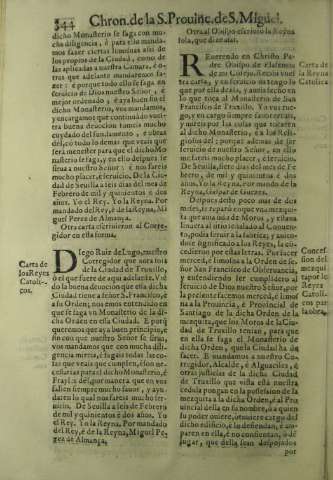 344 Chron. de la S. Provinc. de S. Miguel.
dicho Monasterio se faga con mu-
cha diligencia, è para ello manda-
mos fazer ciertas limosnas assi de
los propios de la Ciudad, como de
las aplicadas a nuestra Camara, è o-
tras que adelante mandaremos fa-
zer: è porque todo ello se faga en
servicio de Dios nuestro Señor, è
mejor ordenado, è aya buen fin el
dicho Monasterio, vos mandamos,
y encargamos que continuado vuestra
buena devocion tomeis mucho
cuydado del fundamento, è obras
del, cõ todo lo demas que veais que
serà menester para que el dicho Mo-
nasterio se faga, y en ello despues se
sirva a nuestro Señor, è nos fareis
mucho placer, è servicio. De la Ciu-
dad de Sevilla a seis dias del mes de
Febrero de mil y quinientos è dos
años. Yo el Rey. Yo la Reyna. Por
mandado del Rey, è de la Reyna, Miguel
Perez de Almança.
Otra carta escrivieron al Corre-
gidor en esta forma.
Carta de
los Reyes
Catoli-
cos.
Diego Ruiz de Lugo, nuestro
Corregidor que sois en
la Ciudad de Truxillo,
ò el que fuere de aqui adelante. Visto
la buena devocion que essa dicha
Ciudad tiene a Señor S. Francisco, è
a su Ordẽ; nos emos contentado en
que se faga un Monasterio de la di-
cha Orden en essa Ciudad. E porq̃
queremos que aya buen principio, è
fin con que nuestro Señor se sirva,
vos mandamos que con mucha di-
ligencia mireis, è fagais todas las co-
sas que veais que cumplen, è son ne-
cessarias para el dicho Monasterio, è
Frayles del, por manera que en vos
fallen siempre mucho favor, è ayu-
daren lo qual nos fareis mucho ser-
vicio. De Sevilla a seis de Febrero
de mil y quinientos è dos años. Yo
el Rey. Yo la Reyna. Por mandado
del Rey, è de la Reyna, Miguel Pe-
rez de Almança.
Otra al Obispo escrivio la Reyna
sola, que dize assi.
Carta de
la Reyna
Catolica.
Reverendo en Christo Pa-
dre Obispo de Plasencia
de mi Consejo. Recibi vues-
tra carta, y en servicio vos tengo lo
que por ella dezis, y aveis fecho en
lo que toca al Monasterio de San
Francisco de Truxillo. Yo vos rue-
go, y en cargo siempre favorezcais,
y mireis por las cosas que tocaren
al dicho Monasterio, è a los Reli-
giosos del; porque ademas de ser
servicio de nuestro Señor, en ello
me fareis mucho placer, è servicio.
De Sevilla, siete dias del mes de Fe-
brero, de mil y quinientos è dos
años. Yo la Reyna. Por mando de la
Reyna, Gaspar de Gricio.
Concess-
sion del
mezqui-
ta por los
Reyes
Catoli-
cos para
la obra.
Despues desto poco mas de dos
meses, se reparò en que una mezqui-
ta que avia sido de Moros, y estava
contra al sitio señalado al Conven-
to, podia servir a la fabrica; y avien-
dose significado a los Reyes, la cõ-
cedieron por estas letras. Por facer
merced, è limosna a la Orden de se-
ñor San Francisco de Observancia,
y entendiendo ser cumplidero al
servicio de Dios nuestro Señor, por
la presente fazemos merced, è limos-
na a la Provincia, è Provincial de
Santiago de la dicha Orden de la
mezquita, que los Moros de la Ciu-
dad de Truxillo tenian, para que
en ella se faga el Monasterio de
dicha Orden, que la Ciudad ha de
facer. E mandamos a nuestro Co-
rregidor, Alcalde, è Alguaciles, è
otras justicias de la dicha Ciudad
de Truxillo que vista esta nuestra
cedula pongan en la possession de la
mezquita a la dicha Orden, è al Pro-
vincial della en su nombre, ò a quien
su poder oviere, è tuviere cargo del
dicho edificio, è la defiendan, è am-
paren en ella, è no consientan, ò dè
lugar, que della sean despojados
por